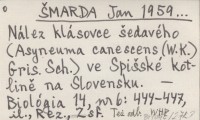 ŠMARDA Jan 1959...
Nález klásovce šedavého
(Asyneuma canescens (W.K.)
Gris. Sch.) ve Spišské kot-
lině na Slovensku. —
Biológia 14, nr 6: 444-447,
il., Rez., Zsf.